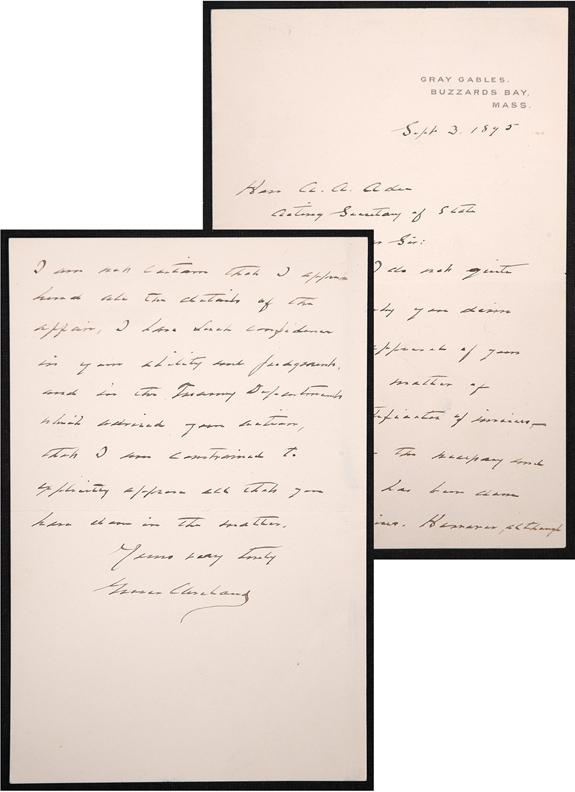 GRAY GABLES.
BUZZARDS BAY,
MASS.
Sept 3. 1895
Hon A. A. Adee
Acting Secretary of State
Sir:
I do not quite
you desire
approval of your
matter of
of invoices,—
the necessary and
has been done
However, although
I am not certain that I appre
hend all the details of the
affair, I have such confidence
in your ability and judgment,
and in the Treasury Department
which advised your action,
that I am constrained to
explicitly approve all that you
have done in the matter.
Yours very truly
Grover Cleveland